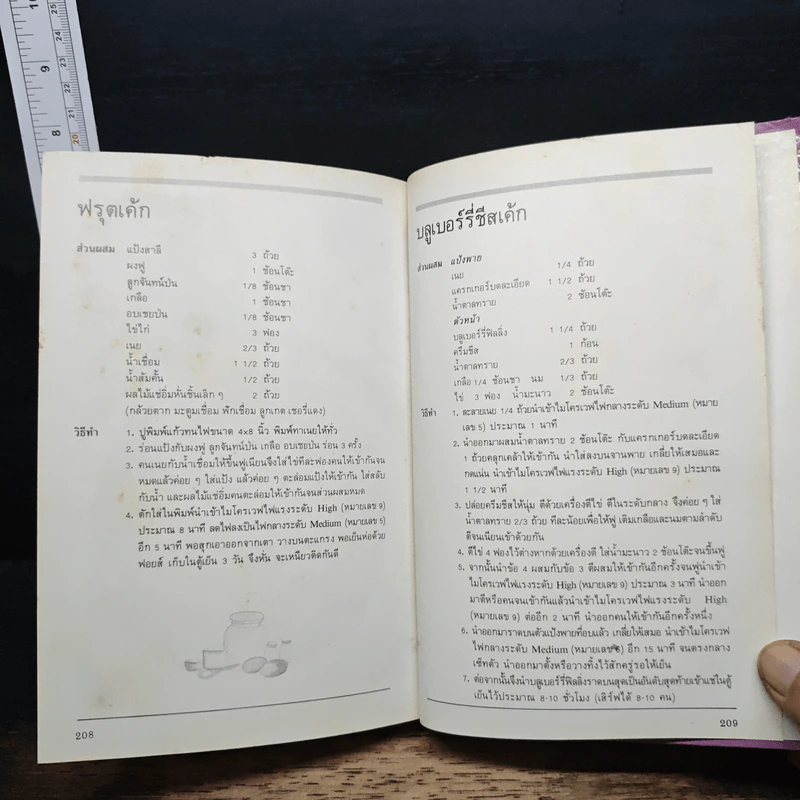 10
9
8
25
24
23
22
21
20
ฟรุตเค้ก
ส่วนผสม แป้งสาลี 3 ถ้วย
ผงฟู 1 ช้อนโต๊ะ
ลูกจันทน์ป่น 1/8 ช้อนชา
เกลือ 1 ช้อนชา
อบเชยป่น 1/8 ช้อนชา
ไข่ไก่ 3 ฟอง
เนย 2/3 ถ้วย
น้ำเชื่อม 1 1/2 ถ้วย
น้ำส้มคั้น 1/2 ถ้วย
ผลไม้แช่อิ่มหั่นชิ้นเล็ก ๆ 2 ถ้วย
(กล้วยตาก มะตูมเชื่อม ฟักเชื่อม ลูกเกด เชอรี่แดง)
วิธีทำ 1. ปูพิมพ์แก้วทนไฟขนาด 4x8 นิ้ว พิมพ์ทาเนยให้ทั่ว
2. ร่อนแป้งกับผงฟู ลูกจันทน์ป่น เกลือ อบเชยป่น ร่อน 3 ครั้ง
3. คนเนยกับน้ำเชื่อมให้ขึ้นฟูเนียนจึงใส่ไข่ทีละฟองคนให้เข้ากันจน
หมดแล้วค่อย ๆ ใส่แป้ง แล้วค่อย ๆ ตะล่อมแป้งให้เข้ากัน ใส่สลับ
กับน้ำ และผลไม้แช่อิ่มคนตะล่อมให้เข้ากันจนส่วนผสมหมด
4. ตักใส่ในพิมพ์นำเข้าไมโครเวฟไฟแรงระดับ High (หมายเลข 9)
ประมาณ 8 นาที ลดไฟลงเป็นไฟกลางระดับ Medium (หมายเลข 5)
อีก 5 นาที พอสุกเอาออกจากเตา วางบนตะแกรง พอเย็นห่อด้วย
ฟอยล์ เก็บในตู้เย็น 3 วัน จึงหั่น จะเหนียวติดกันดี
208
บลูเบอร์รี่ชีสเค้ก
ส่วนผสม แป้งพาย
เนย 1/4 ถ้วย
แครกเกอร์บดละเอียด 1 1/2 ถ้วย
น้ำตาลทราย 2 ช้อนโต๊ะ
ตัวหน้า
บลูเบอร์รี่ฟิลลิ่ง 1 1/4 ถ้วย
ครีมชีส 1 ก้อน
น้ำตาลทราย 2/3 ถ้วย
เกลือ 1/4 ช้อนชา นม 1/3 ถ้วย
ไข่ 3 ฟอง น้ำมะนาว 2 ช้อนโต๊ะ
วิธีทำ 1. ละลายเนย 1/4 ถ้วยนำเข้าไมโครเวฟไฟกลางระดับ Medium (หมาย
เลข 5) ประมาณ 1 นาที
2. นำออกมาผสมน้ำตาลทราย 2 ช้อนโต๊ะ กับแครกเกอร์บดละเอียด
1 ถ้วยคลุกเคล้าให้เข้ากัน นำใส่ลงบนจานพาย เกลี่ยให้เสมอและ
กดแน่น นำเข้าไมโครเวฟไฟแรงระดับ High (หมายเลข 9) ประมาณ
1 1/2 นาที
3. ปล่อยครีมชีสให้นุ่ม ตีด้วยเครื่องตีไข่ ตีในระดับกลาง จึงค่อย ๆ ใส่
น้ำตาลทราย 2/3 ถ้วย ทีละน้อยเพื่อให้ฟู เติมเกลือและนมตามลำดับ
ตีจนเนียนเข้าด้วยกัน
4. ตีไข่ 4 ฟองไว้ต่างหากด้วยเครื่องตี ใส่น้ำมะนาว 2 ช้อนโต๊ะจนขึ้นฟู
5. จากนั้นนำข้อ 4 ผสมกับข้อ 3 ตีผสมให้เข้ากันอีกครั้งจนฟูนำเข้า
ไมโครเวฟไฟแรงระดับ High (หมายเลข 9) ประมาณ 3 นาที นำออก
มาตีหรือคนจนเข้ากันแล้วนำเข้าไมโครเวฟไฟแรงระดับ High
(หมายเลข 9) ต่ออีก 2 นาที นำออกคนให้เข้ากันอีกครั้งหนึ่ง
6. นำออกมาราดบนตัวแป้งพายที่อบแล้ว เกลี่ยให้เสมอ นำเข้าไมโครเวฟ
ไฟกลางระดับ Medium (หมายเลข 5) อีก 15 นาที จนตรงกลาง
เซ็ทตัว นำออกมาตั้งหรือวางทิ้งไว้สักครู่รอให้เย็น
7. ต่อจากนั้นจึงนำบลูเบอร์รี่ฟิลลิ่งราดบนสุดเป็นอันดับสุดท้ายเข้าแช่ในตู้
เย็นไว้ประมาณ 8-10 ชั่วโมง (เสิร์ฟได้ 8-10 คน)
209